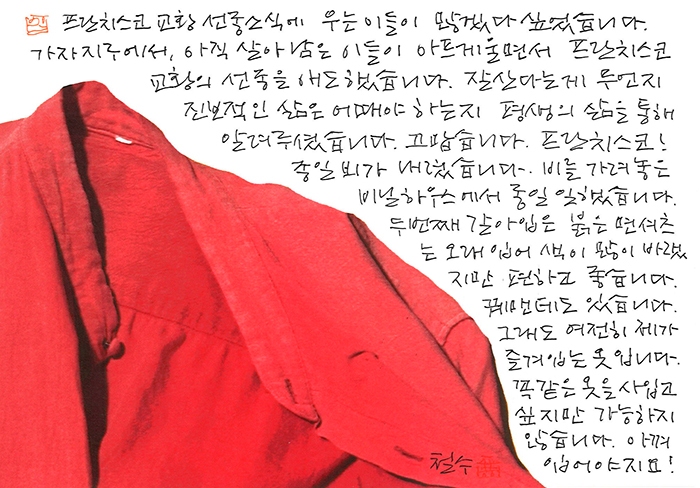 프란치스코 교황 선종소식에 우는 이들이 많겠다 싶었습니다.
가자지구에서, 아직 살아남은 이들이 아프게 울면서 프란치스코
교황의 선종을 애도했습니다. 잘산다는게 무언지
진보적인 삶은 어때야 하는지 평생의 삶을 통해
알려주셨습니다. 고맙습니다. 프란치스코!
종일 비가 내렸습니다. 비를 가려놓은
비닐하우스에서 종일 일했습니다.
두번째 갈아입은 붉은 면셔츠
는 오래 입어 색이 많이 바랬
지만 편하고 좋습니다.
꿰맨데도 있습니다.
그래도 여전히 제가
즐겨입는 옷입니다.
꼭같은 옷을 사입고
싶지만 가능하지
않습니다. 아껴
입어야지요!
철수